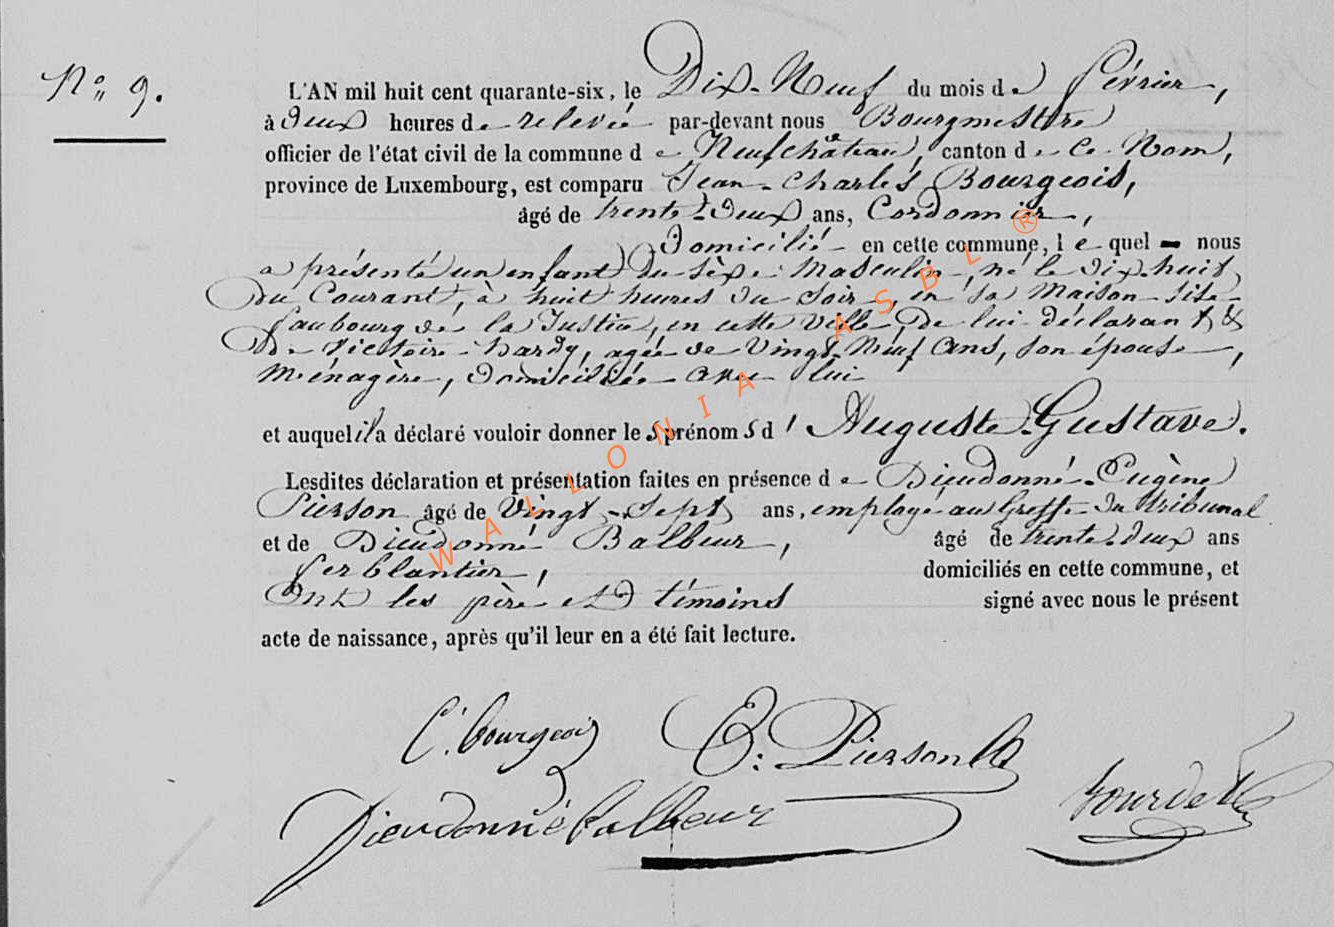 N° 9.
L'AN mil huit cent quarante-six, le Dix-Neuf du mois de février,
à deux heures de relevée par-devant nous Bourgmestre
officier de l'état civil de la commune de Neufchâteau, canton de Ce Nom,
province de Luxembourg, est comparu Jean-Charles Bourgeois,
âgé de trente-deux ans, Cordonnier,
Domicilié en cette commune, lequel nous
a présenté un enfant du sèxe Masculin, né le dix-huit
du Courant, à huit heures du soir, en sa Maison sise
faubourg de la Justice, en cette Ville, de lui déclarant &
De Victoire Hardy, agée de Vingt-Neuf ans, son épouse,
Ménagère, domiciliée avec lui
et auquel il a déclaré vouloir donner les prénoms d'Auguste-Gustave.
Lesdites déclaration et présentation faites en présence de Dieudonné-Eugène
Pierson âgé de Vingt-Sept ans, employé au Greffe du tribunal
et de Dieudonné Balbeur, âgé de trente-deux ans
ferblantier, domiciliés en cette commune, et
Ont les père et témoins signé avec nous le présent
acte de naissance, après qu'il leur en a été fait lecture.
C. bourgeois E: Pierson
Dieudonné balbeur
WALLONIA ASBL ®